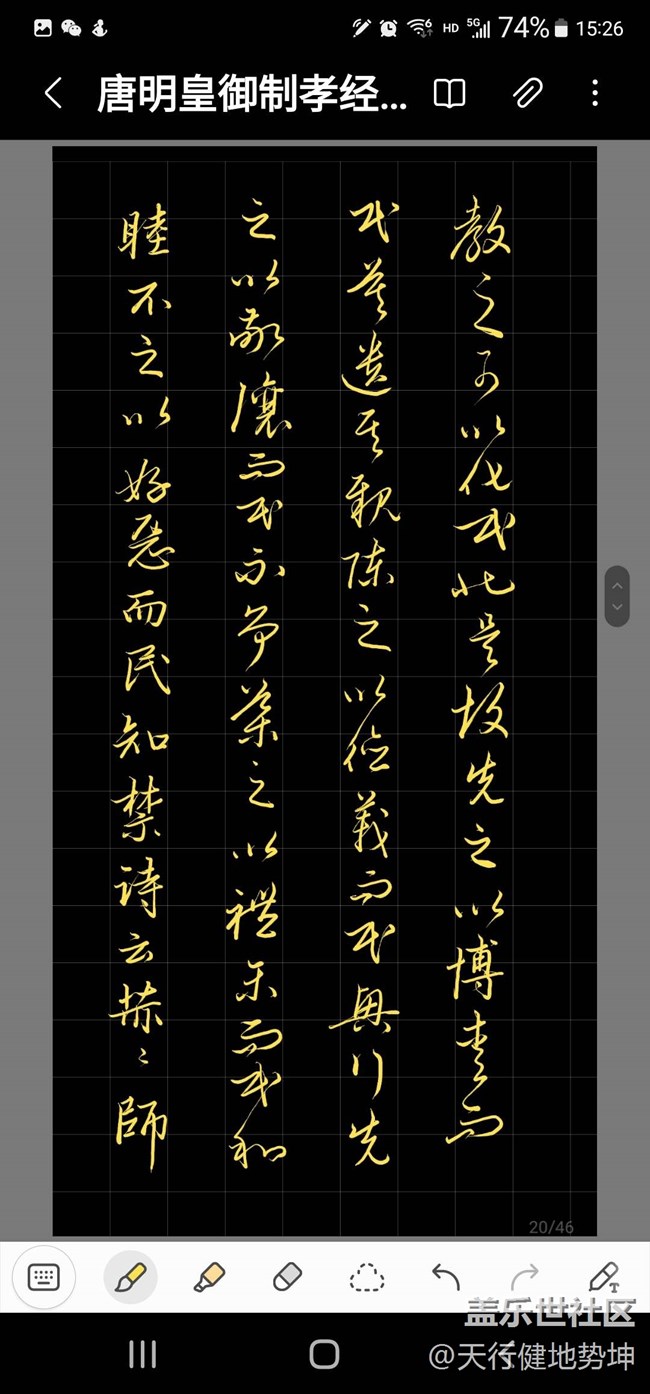 HD 5G 74% 15:26
唐明皇御制孝经...
教之可以化民此是故先之以博愛而
民莫遺其親陳之以德義而民興行先
之以敬讓而民不争導之以禮樂而民和
睦示之以好惡而民知禁詩云赫〻師
20/46
盖乐世社区
@天行健地势坤